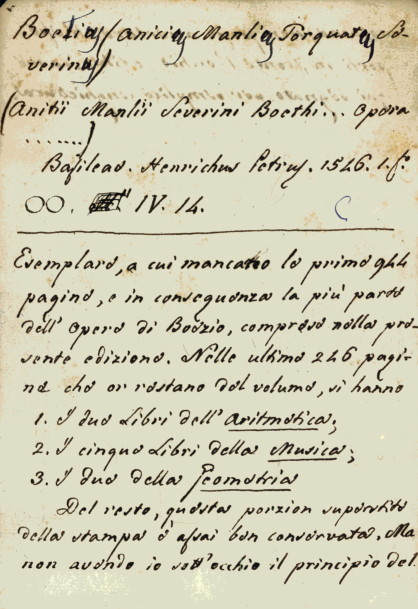 Boetius (Anicius Manlius Torquatus Se-
verinus)
(Anitii Manlii Severini Boethi... Opera
.......)
Basileae. Henrichus Petrus. 1546. 1. fo.
OO. IV. 14.
Esemplare, a cui mancano le prime 944
pagine, e in conseguenza la più parte
dell'Opere di Boezio, comprese nella pre-
sente edizione. Nelle ultime 226 pagi-
ne che or restano del volume, si hanno
1. I due Libri dell'Aritmetica;
2. I cinque Libri della Musica;
3. I due della Geometria
Del resto, questa porzion superstite
della stampa è assai ben conservata. Ma
non avendo io sott'occhio il principio del